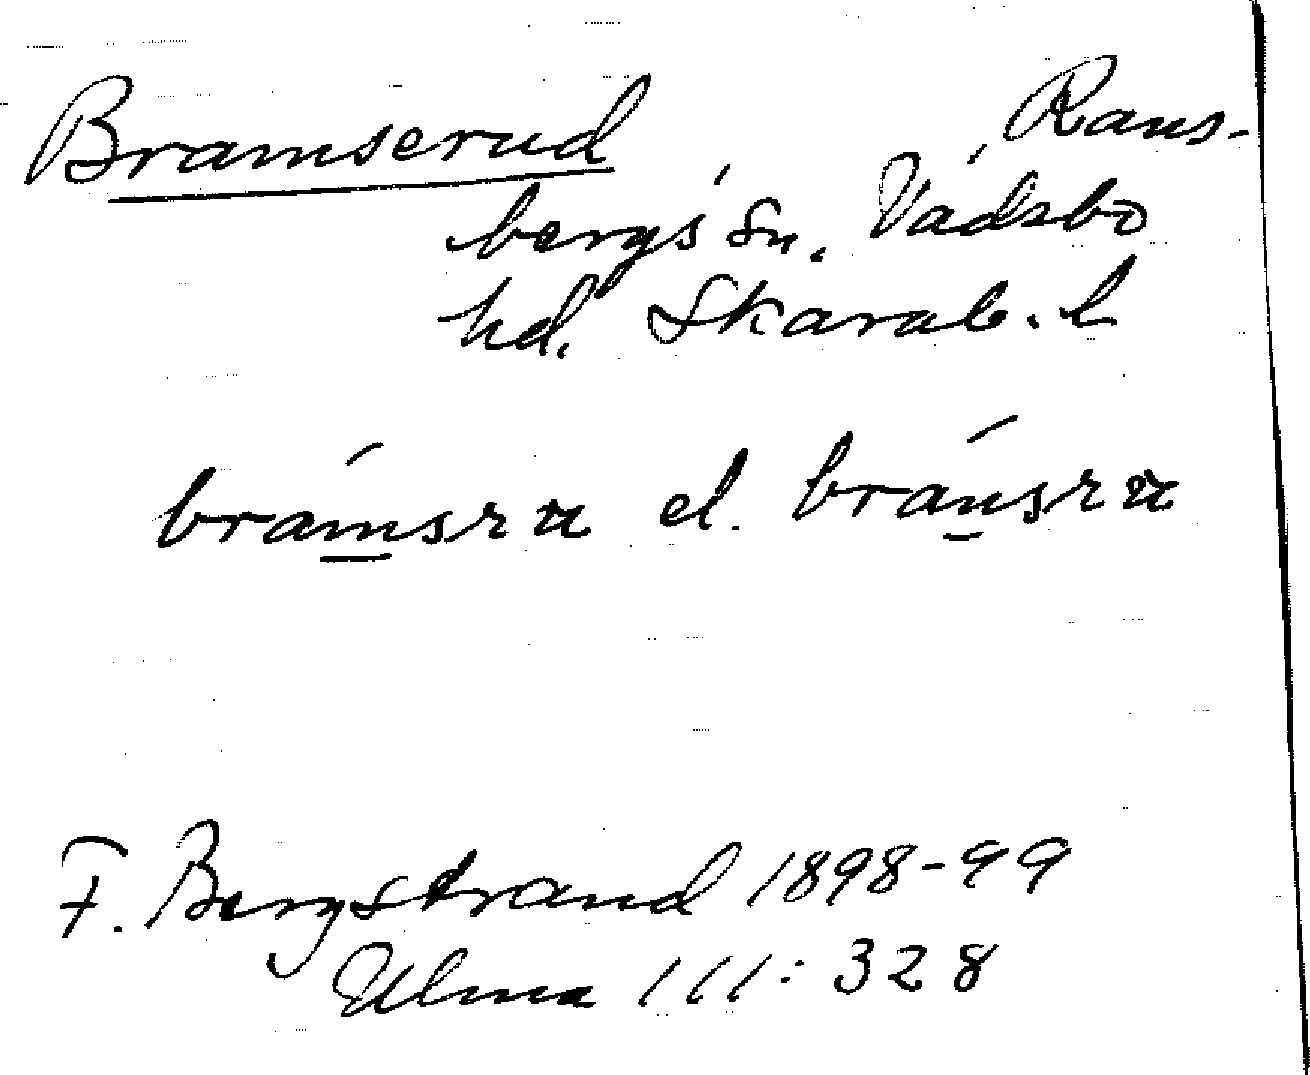 Bramserud, Rans-
bergs sn. Vadsbo
hd. Skarab. l
brámsru el. bránsru
F. Bergstrand 1898-99
Ulma 111:328